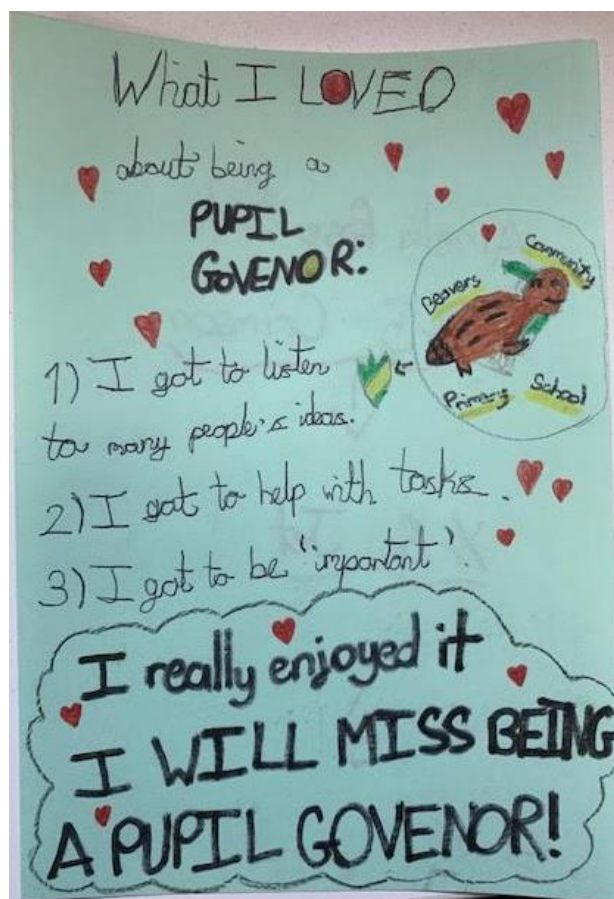 What I LOVED
about being a
PUPIL
GOVENOR:
Beavers
Community
Primary
School
1) I got to listen
to many people's ideas.
2) I got to help with tasks.
3) I got to be "important".
I really enjoyed it
I WILL MISS BEING
A PUPIL GOVENOR!